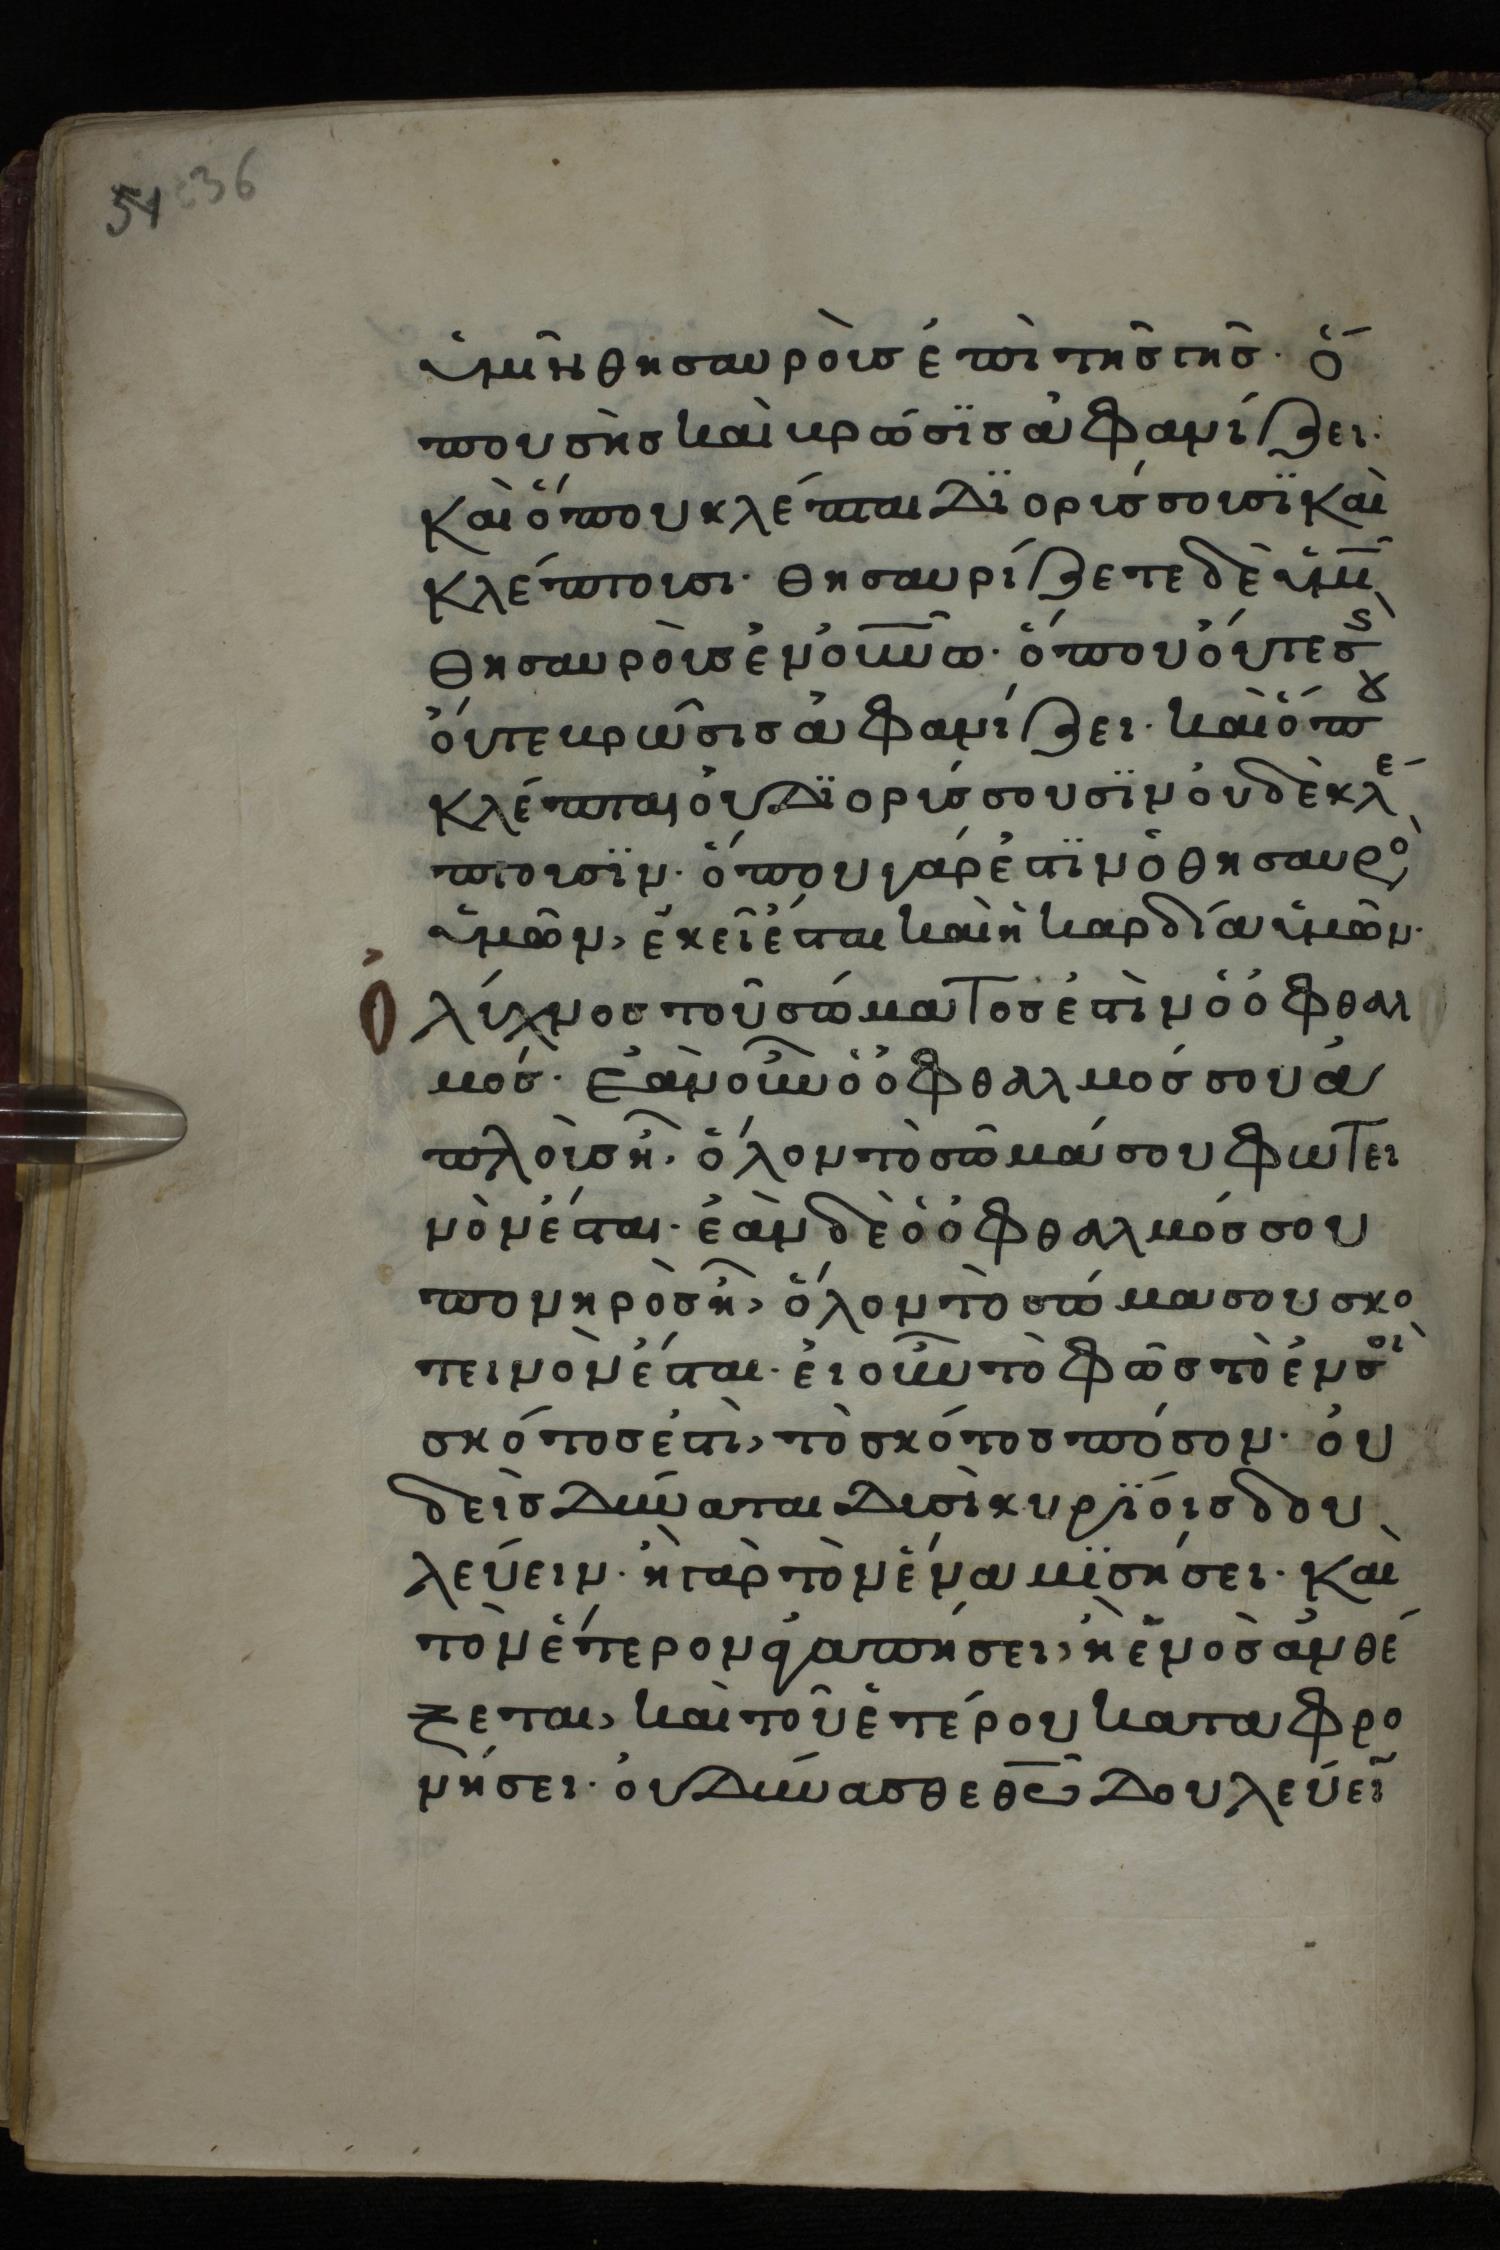 54 36
ὑμῖν θησαυροὺς ἐπὶ τῆς γῆς· ὅ
που σὴς καὶ βρώσϊς ἀφανίζει·
καὶ ὅπου κλέπται δϊορύσσουσϊ καὶ
κλέπτουσι· θησαυρίζετε δὲ ὑμῖ
θησαυροὺς ἐν οὐνῶ· ὅπου οὔτε σὴς
οὔτε βρῶσις ἀφανίζει· καὶ ὅπου
κλέπται οὐ δϊορύσσουσϊν οὐδὲ κλέ
πτουσϊν· ὅπου γάρ ἐστϊν ὁ θησαυρὸς
ὑμῶν, ἐκεῖ ἔσται καὶ ἡ καρδία ὑμῶν·
Ὁ λύχνος τοῦ σώματος ἐστὶν ὁ ὀφθαλ
μός· ἐὰν οὖν ὁ ὀφθαλμός σου ἁ
πλοὺς ἦ, ὅλον τὸ σῶμά σου φωτει
νὸν ἔσται· ἐὰν δὲ ὁ ὀφθαλμός σου
πονηρὸς ἦ, ὅλον τὸ σώμα σου σκο
τεινὸν ἔσται· εἰ οὖν τὸ φῶς τὸ ἐν σοὶ
σκότος ἐστὶ, τὸ σκότος πόσον· οὐ
δεὶς δύναται δυσὶ κυρϊόις δου
λεύειν· ἢ γὰρ τὸν ἕνα μϊσήσει· καὶ
τὸν ἕτερον ἀγαπήσει, ἢ ἑνὸς ἀνθέ
ξεται, καὶ τοῦ ἑτέρου καταφρο
νήσει· οὐ δύνασθε θῶ δουλεύει